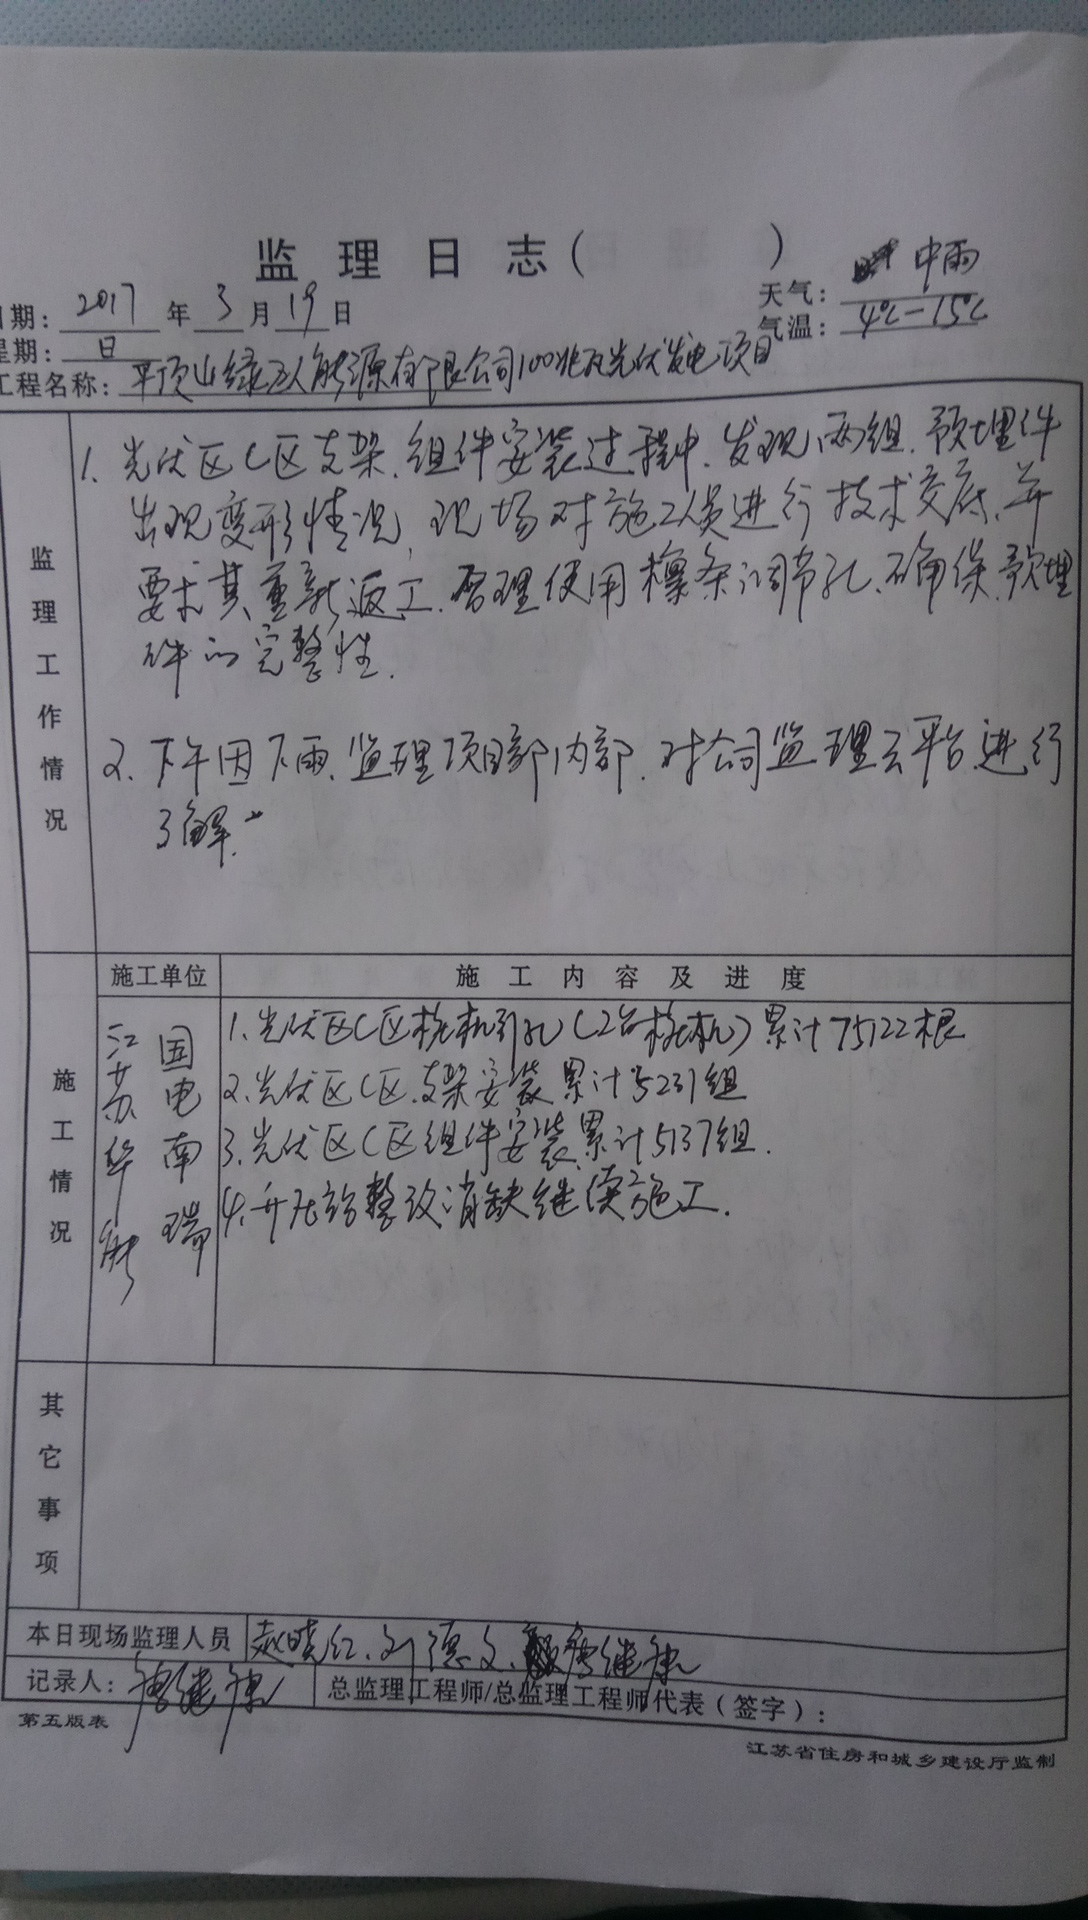 监理日志（ ）
天气：中雨
日期：2017年3月19日
气温：4℃-15℃
星期：日
工程名称：平顶山绿 能源有限公司100兆瓦光伏发电项目
监理工作情况
1. 光伏区C区支架、组件安装过程中、发现两组、预埋件
出现变形情况，现场对施工人员进行技术交底、并
要求其重新返工、合理使用檩条调节孔、确保预埋
件的完整性.
2. 下午因下雨、监理项目部内部、对公司监理云平台进行
了解.
施工单位 施工内容及进度
施工情况
江苏华能
国电南瑞
1. 光伏区C区桩机引孔（2台桩机）累计75122根
2. 光伏区C区、支架安装累计5231组
3. 光伏区C区组件安装累计5137组.
4. 升压站整改消缺继续施工.
其它事项
本日现场监理人员 赵晓红、刘德文、唐继康
记录人：唐继康 总监理工程师/总监理工程师代表（签字）：
第五版表
江苏省住房和城乡建设厅监制